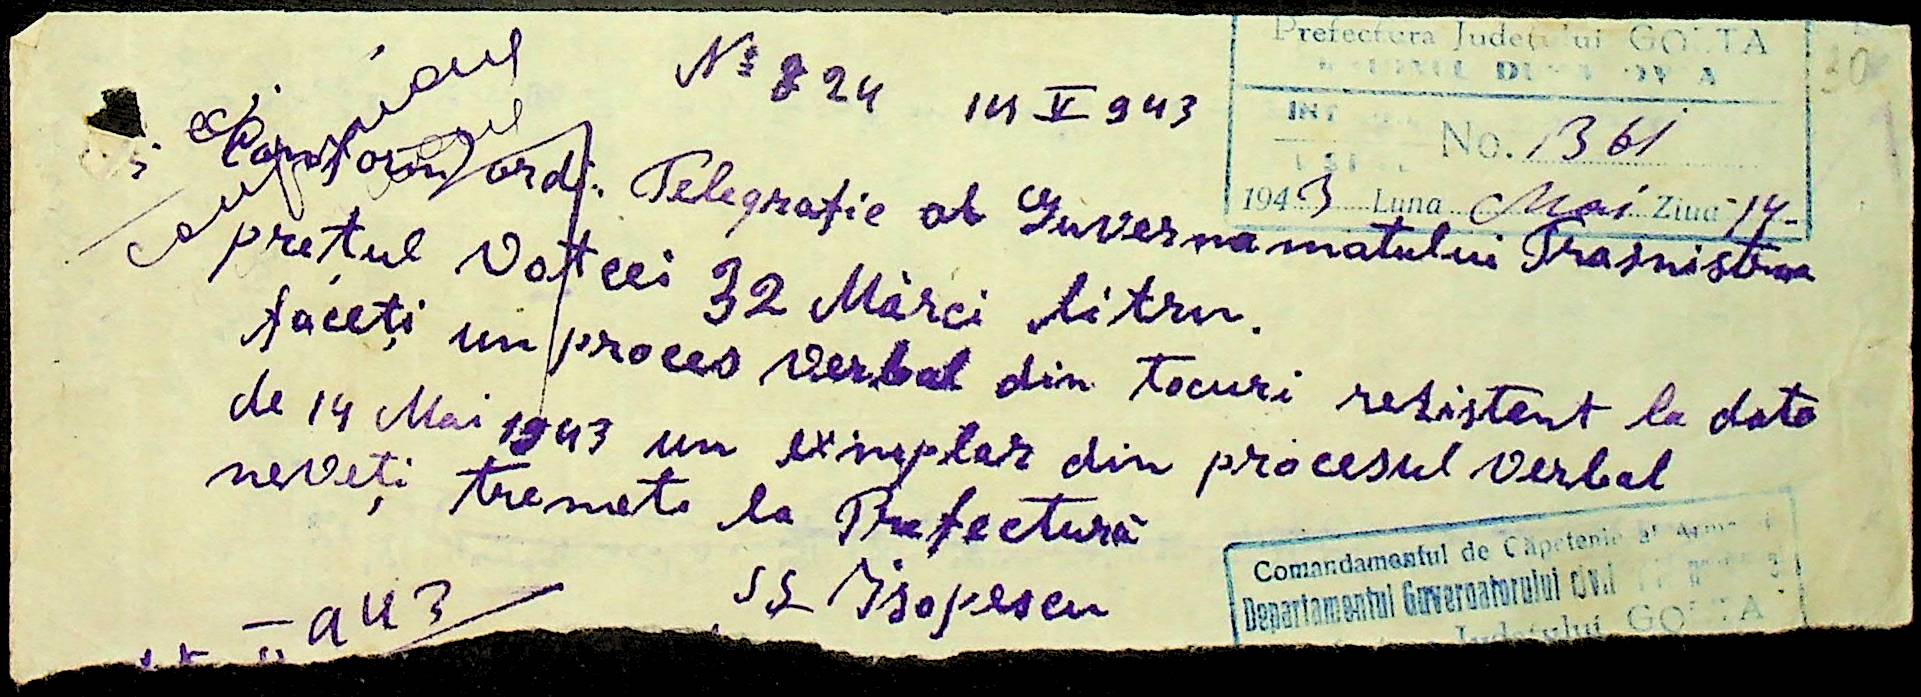 Nº 824 14 V 943
Prefectura Județului GOLTA
No. 1361
1943 Luna Mai Ziua 14
Conform ordi. Telegrafic al Guvernamatului Trasnistria
prețul Votcei 32 Mărci litru.
faceți un proces verbal din tocuri rezistent la data
de 14 Mai 1943 un exinplar din procesul verbal
neveți tremete la Prefectură
SS Isopescu
943
Comandamentul de Căpetenie al Armatei
Departamentul Guvernatorului civil
Județului GOLTA